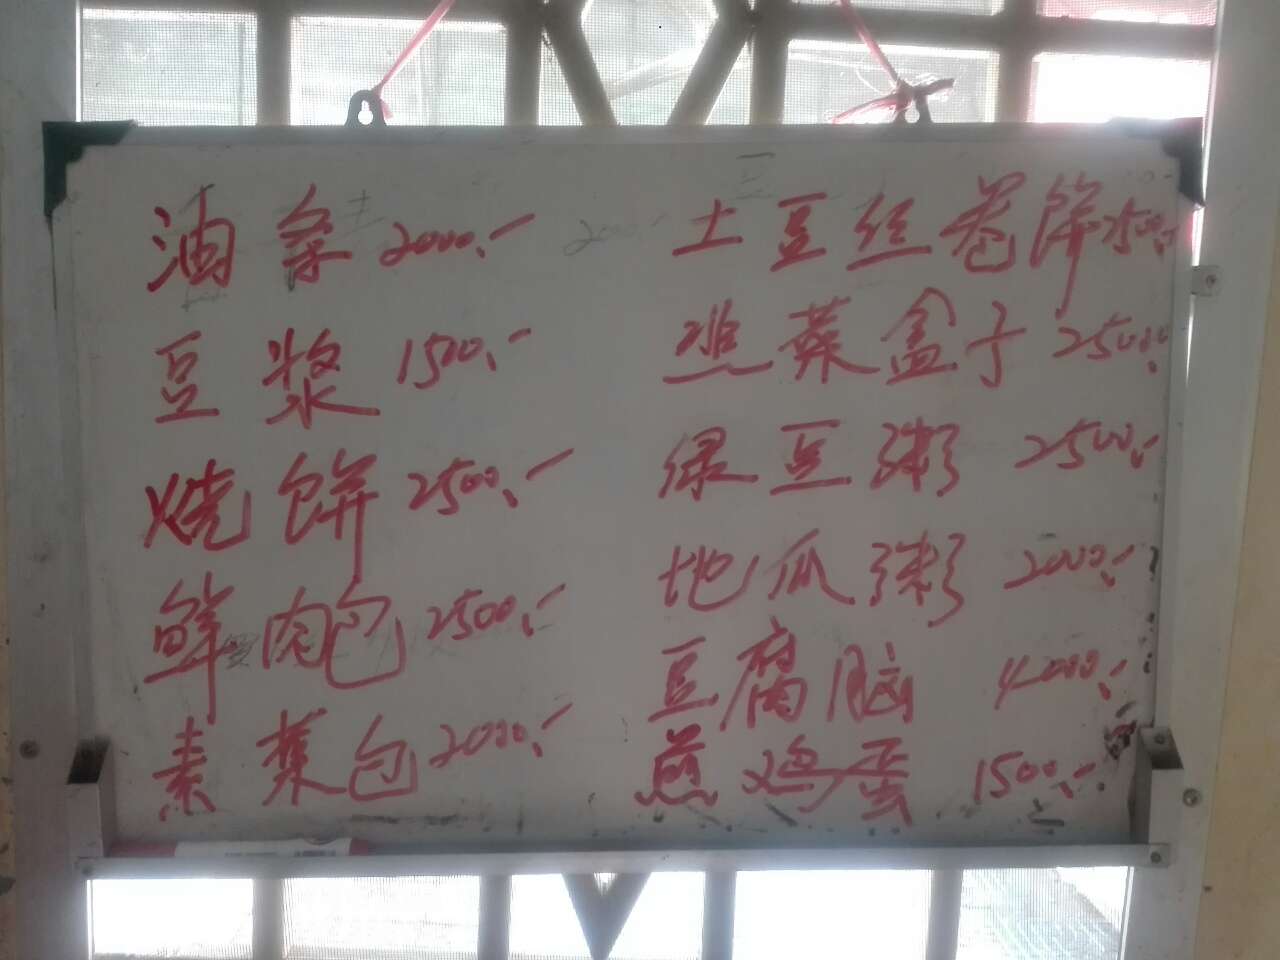 油条 2000.-
豆浆 1500.-
烧饼 2500.-
鲜肉包 2500.-
素菜包 2000.-
土豆丝卷饼 2500.-
韭菜盒子 2500.-
绿豆粥 2500.-
地瓜粥 2000.-
豆腐脑 4000.-
煎鸡蛋 1500.-